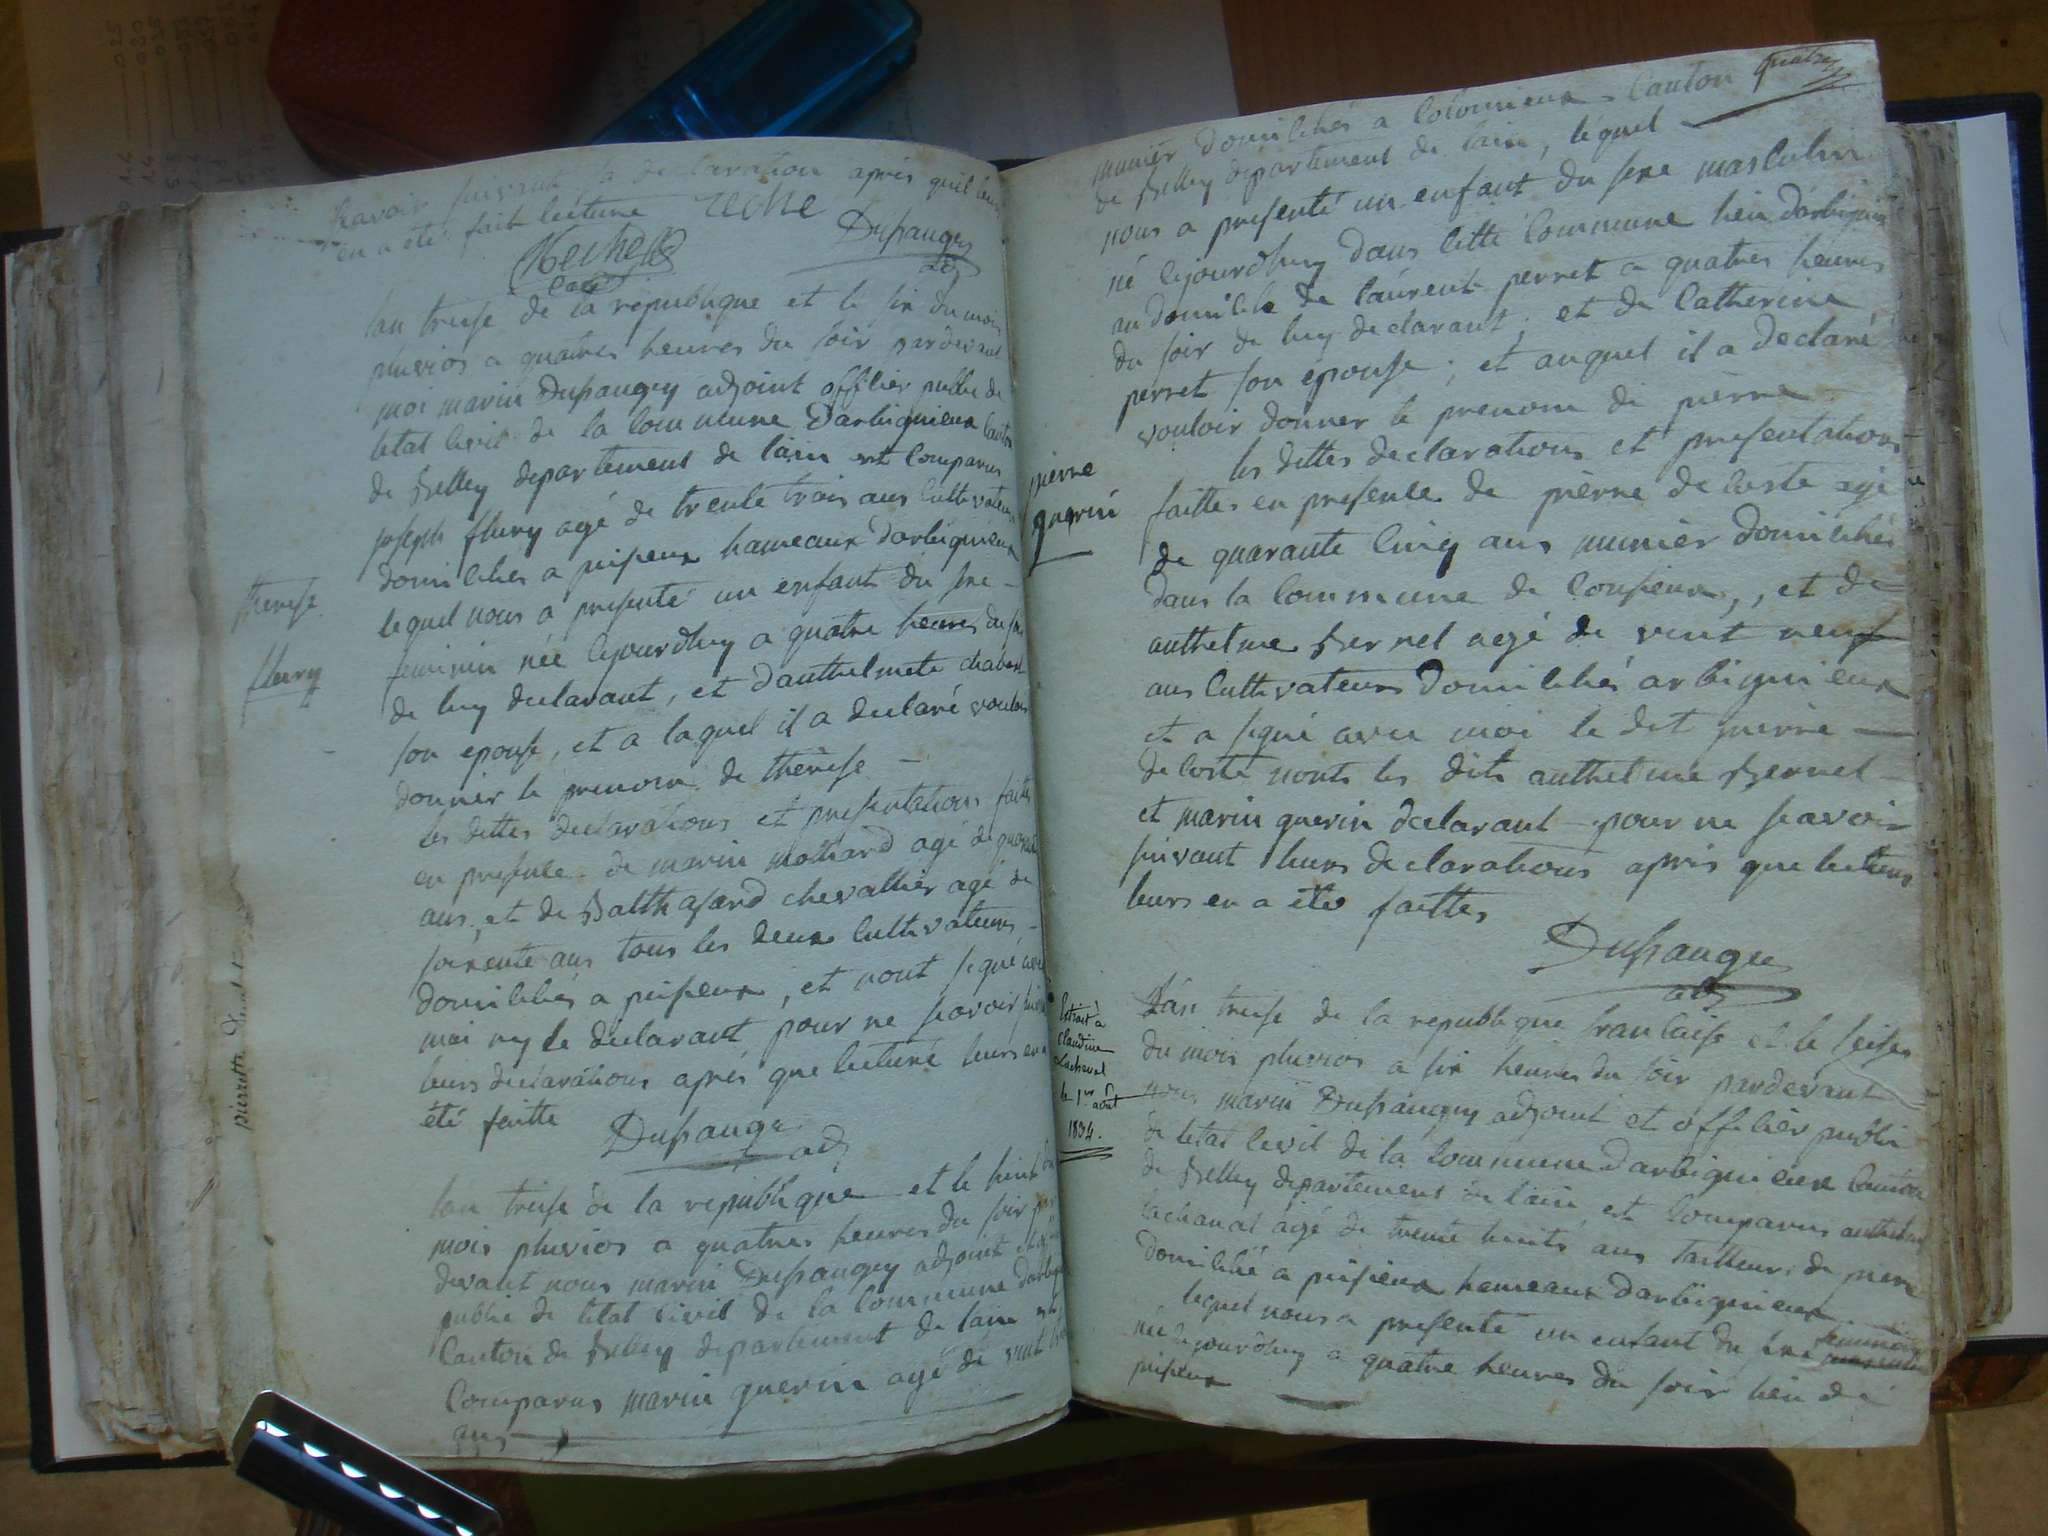 scavoir suivant la declaration après quil leur
en a eté fait lecture
Dupaugey
adj
lan treise de la republique et le six du mois
pluvios a quatres heures du soir pardevant
moi marin Dupaugey adjoint officier public de
letat civil de la commune Darbignieux Canton
de Belley departement de lain est comparus
joseph fleury agé de trente trois ans cultivateur
domiciliés a peisieux hameaux darbignieux
lequel nous a presenté un enfant du sexe
feminin née cejourdhuy a quatre heures du soir
de luy declarant, et danthelmete chabert
son epouse, et a laquel il a declaré vouloir
donner le prenom de thérèse
therese
fleury
les dittes declarations et presentations faites
en presence de marin mollard agé de quarante
ans, et de Balthazard chevallier agé de
soixente ans tous les deux cultivateurs
domiciliés a peisieux, et nont signé avec
moi ny le declarant pour ne scavoir suivant
leurs declarations après que lecture leurs en a
été faitte
Dupaugey
adj
lan treise de la republique et le huit du
mois pluvios a quatres heures du soir par
devant nous marin Dupaugey adjoint et officier
public de letat civil de la commune darbignieux
Canton de Belley departement de lain est
comparus marin guerin agé de vint
ans
quatre
munier domiciliés a Colomieux Canton
de Belley departement de lain, lequel
nous a presenté un enfant du sexe masculin
né cejourdhuy dans cette commune lieu darbignieux
au domicile de laurent perret a quatres heures
du soir de luy declarant, et de Catherine
perret son epouse; et auquel il a declaré
vouloir donner le prenom de pierre
pierre
guerin
les dittes declarations et presentations
faittes en presence de pierre decoste agé
de quarante cinq ans munier domiciliés
dans la commune de Conzieux, et de
anthelme Bernel agé de vint neuf
ans cultivateurs domiciliés arbignieux
et a signé avec moi le dit pierre
decoste nonts les dits anthelme Bernel
et marin guerin declarant pour ne scavoir
suivant leurs declarations après que lecture
leurs en a été faittes
Dupaugey
adj
Extrait à
Claudine
Lachanal
le 1er août
1834.
Lan treise de la republique francaise et le seises
du mois pluvios a six heures du soir pardevant
nous marin Dupaugey adjoint et officier public
de letat civil de la commune darbignieux Canton
de Belley departement de lain, est comparus anthelme
lachanal agé de trente huits ans tailleurs de pierre
domicilié a peisieux hameaux darbignieux
lequel nous a presenté un enfant du sexe feminin
née cejourdhuy a quatre heures du soir lieu de
peisieux